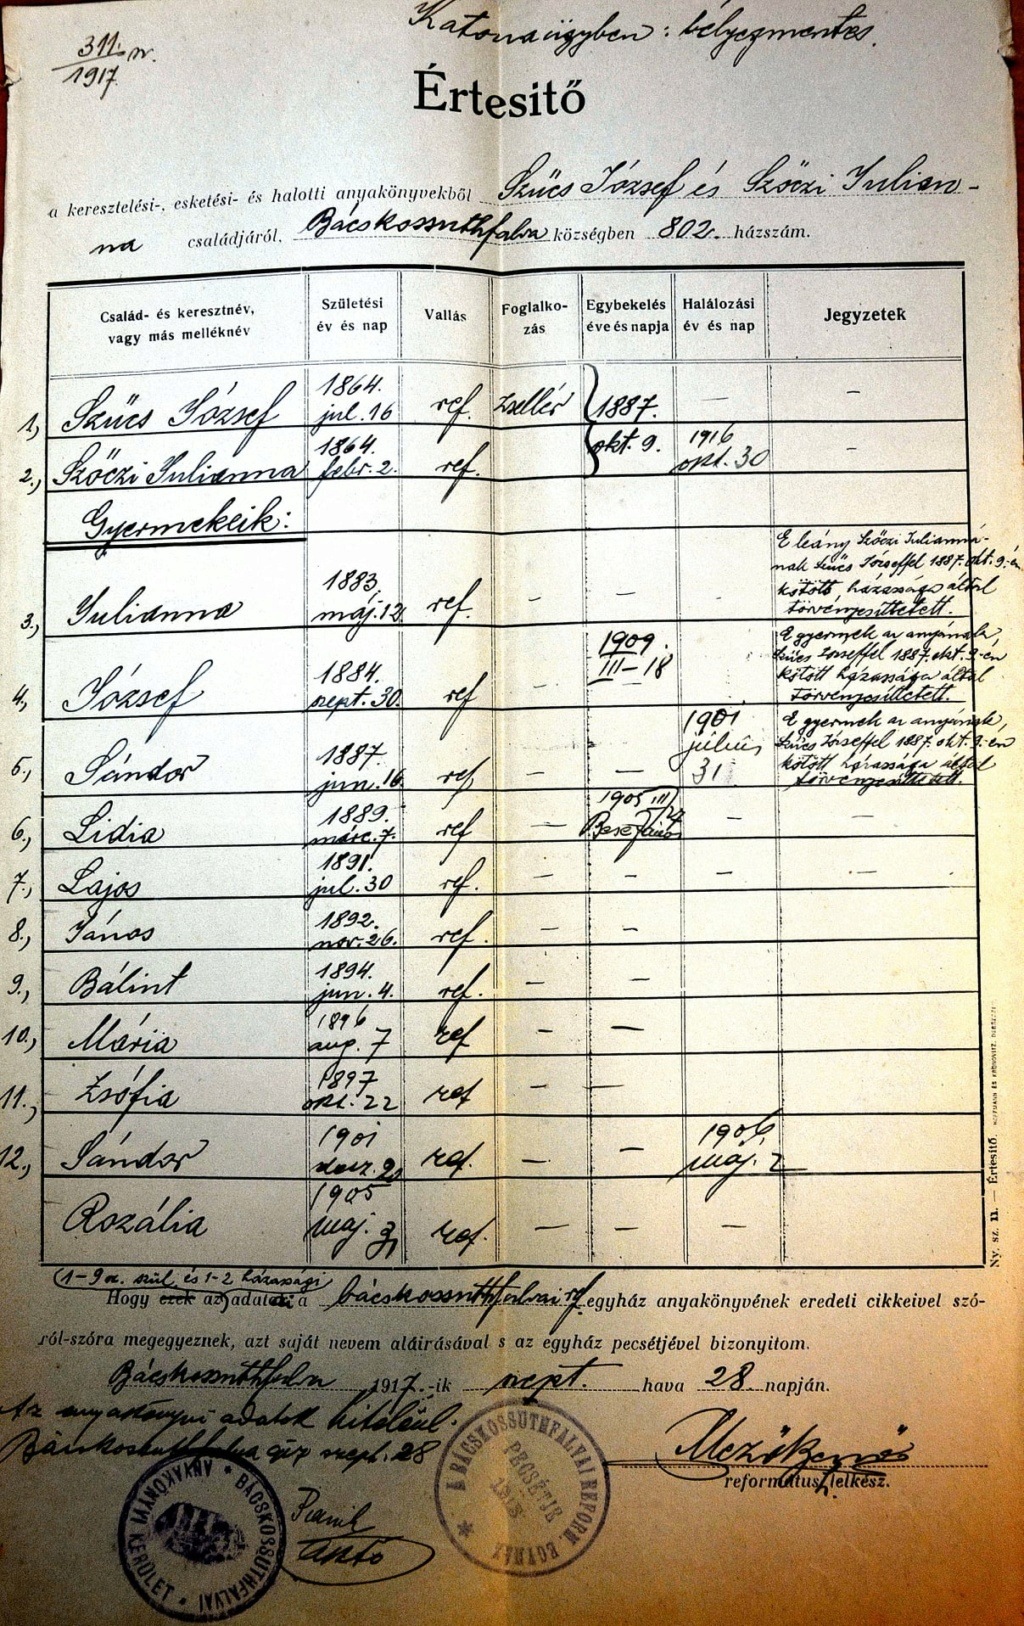 Katonaügyben: bélyegmentes.
311.
1917
Értesitő
a keresztelési-, esketési- és halotti anyakönyvekből Szűcs József és Szőczi Julian-
na családjáról. Bácskossuthfalva községben 802. házszám.
Család- és keresztnév, vagy más melléknév | Születési év és nap | Vallás | Foglalko-zás | Egybekelés éve és napja | Halálozási év és nap | Jegyzetek
1, Szűcs József 1864. jul. 16 ref. zsellér 1887. okt. 9. — —
2., Szőczi Julianna 1864. febr. 2. ref. 1916 okt. 30 —
Gyermekeik:
3., Julianna 1883 máj. 12 ref. — — — E leány Szőczi Julianná-
nak Szűcs Józseffel 1887. okt. 9.-én
kötött házassága által
törvényesíttetett.
4, József 1884. szept. 30. ref — 1909. III-18 — E gyermek az anyának
Szűcs Józseffel 1887. okt. 9-én
kötött házassága által
törvényesíttetett.
5., Sándor 1887. jun. 16 ref — — 1901 július 31 E gyermek az anyának,
Szűcs Józseffel 1887. okt. 9.-én
kötött házassága által
törvényesíttetett.
6., Lidia 1889. márc. 7. ref — 1905 III — —
7., Lajos 1891. jul. 30 ref. — — — —
8., János 1892. nov. 26. ref. — —
9., Bálint 1894. jun. 4. ref. — —
10., Mária 1896 aug. 7 ref — —
11., Zsófia 1897 okt. 22 ref — —
12., Sándor 1901 ref. — — 1906. máj. 2
Rozália 1905 maj. 31 ref. — — —
1-9 a. szül. és 1-2 házassági
Hogy ezek az adatok a bácskossuthfalvai rf. egyház anyakönyvének eredeti cikkeivel szó-
ról-szóra megegyeznek, azt saját nevem aláirásával s az egyház pecsétjével bizonyitom.
Bácskossuthfalva 1917.-ik szept. hava 28. napján.
Az anyakönyvi adatok hiteléül.
Bácskossuthfalva 917 szept. 28
református lelkész.
A BÁCSKOSSUTHFALVAI REFORM. EGYHÁZ
PECSÉTJE
BÁCSKOSSUTHFALVAI ANYAKÖNYVI KERÜLET
Ny. sz. 11. — Értesitő.